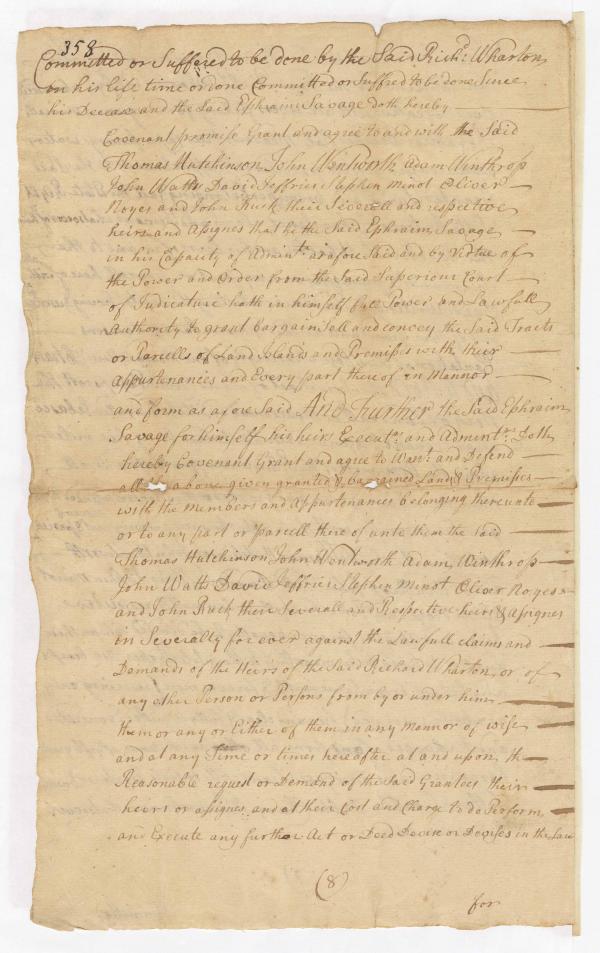 358
Committed or Suffered to be done by the Said Richd. Wharton
in his life time or done Committed or Suffred to be done Since
his Decease and the Said Ephraim Savage doth hereby
Covenant promise Grant and agree to and with the Said
Thomas Hutchinson John Wentworth Adam Winthrop
John Watts David Jeffries Stephen Minot Oliver
Noyes and John Ruck their Severell and respective
heirs and Assignes that he the Said Ephraim Savage
in his Capacity of Adminr. as afore Said and by Virtue of
the Power and Order from the Said Superiour Court
of Judicature hath in himself full Power and Lawfull
Authority to grant bargain Sell and convey the Said Tracts
or Parcells of Land Islands and Premises with their
Appurtenances and Every part there of in Mannor
and form as afore Said And Further the Said Ephraim
Savage for himself his heirs Execut. and Admentrs. Doth
hereby Covenant Grant and agree to Warr. and Defend
all above given granted & bargained Lands & Premisses
with the Members and Appurtenances belonging thereunto
or to any part or parcell there of unto them the said
Thomas Hutchinson John Wentworth Adam Winthrop
John Watts David Jeffries Stephen Minot Oliver Noyes
and John Ruck their Severall and Respective heirs & Assignes
in Severally for ever against the Lawfull claims and
Demands of the Heirs of the Said Richard Wharton or of
any other Person or Persons from by or under him
them or any or Either of them in any Mannor of wise
and at any Time or times hereafter at and upon the
Reasonable request or Demand of the Said Grantees their
heirs or assignes and at their Cost and Charge to do Perform
and Execute any further Act or Deed Devise or Devises in the Law
(8)
for